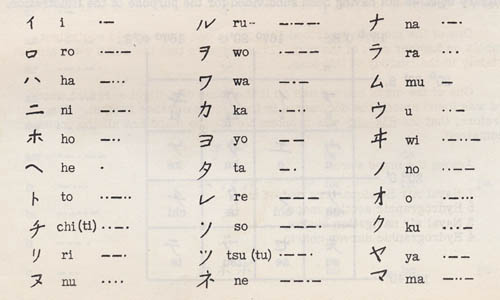 イ i ·– ル ru –·––· ナ na ·–·
ロ ro ·–·– ヲ wo ·––– ラ ra ···
ハ ha –··· ワ wa –·– ム mu –
ニ ni –·–· カ ka ·–·· ウ u ··–
ホ ho –·· ヨ yo –– ヰ wi ·–··–
ヘ he · タ ta –· ノ no ··––
ト to ··–·· レ re ––– オ o ·–···
チ chi (ti) ··–· ソ so –––· ク ku ···–
リ ri ––· ツ tsu (tu) ·––· ヤ ya ·––
ヌ nu ···· ネ ne ––·– マ ma –··–